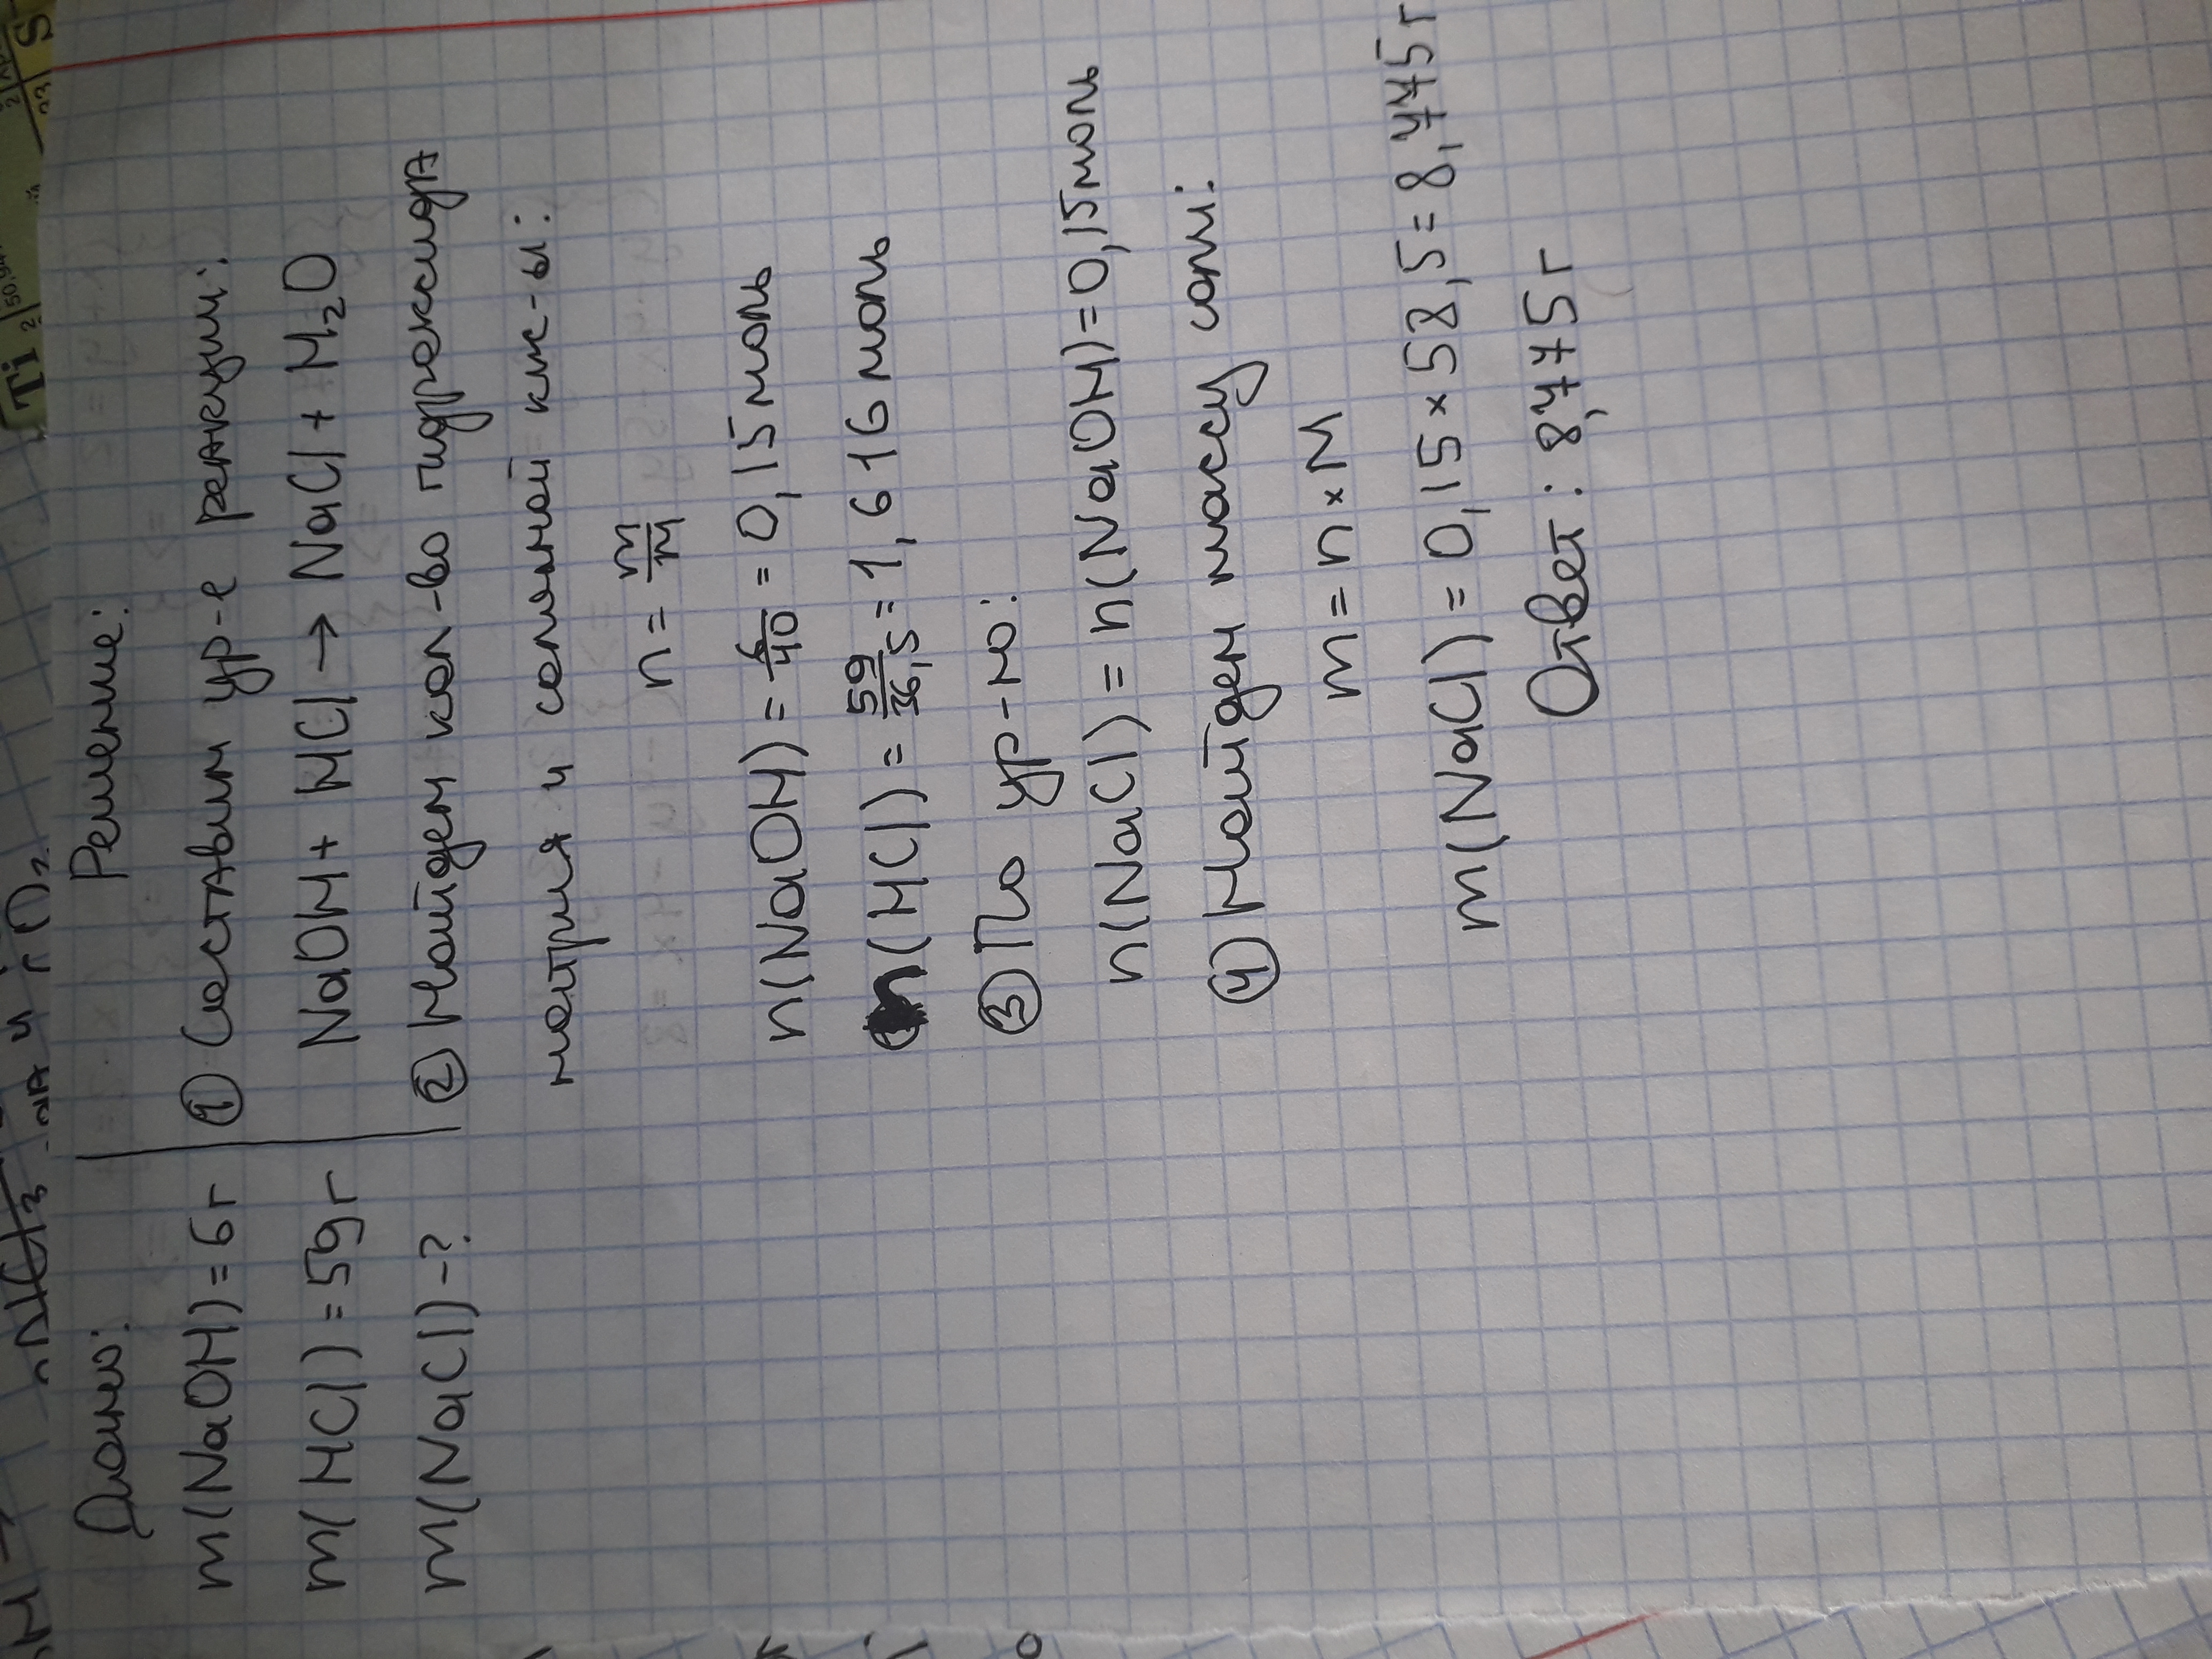 Дано:
m(NaOH)=6г
m(HCl)=59г
m(NaCl)-?
Решение:
① Составим ур-е реакции:
NaOH+HCl→NaCl+H₂O
② Найдем кол-во гидроксида
натрия и соляной кис-ы:
n=m/M
n(NaOH)=6/40=0,15моль
n(HCl)=59/36,5=1,616моль
③ По ур-ю:
n(NaCl)=n(NaOH)=0,15моль
④ Найдем массу соли:
m=n×M
m(NaCl)=0,15×58,5=8,775г
Ответ: 8,775г
Ti
2
50,94
23
S